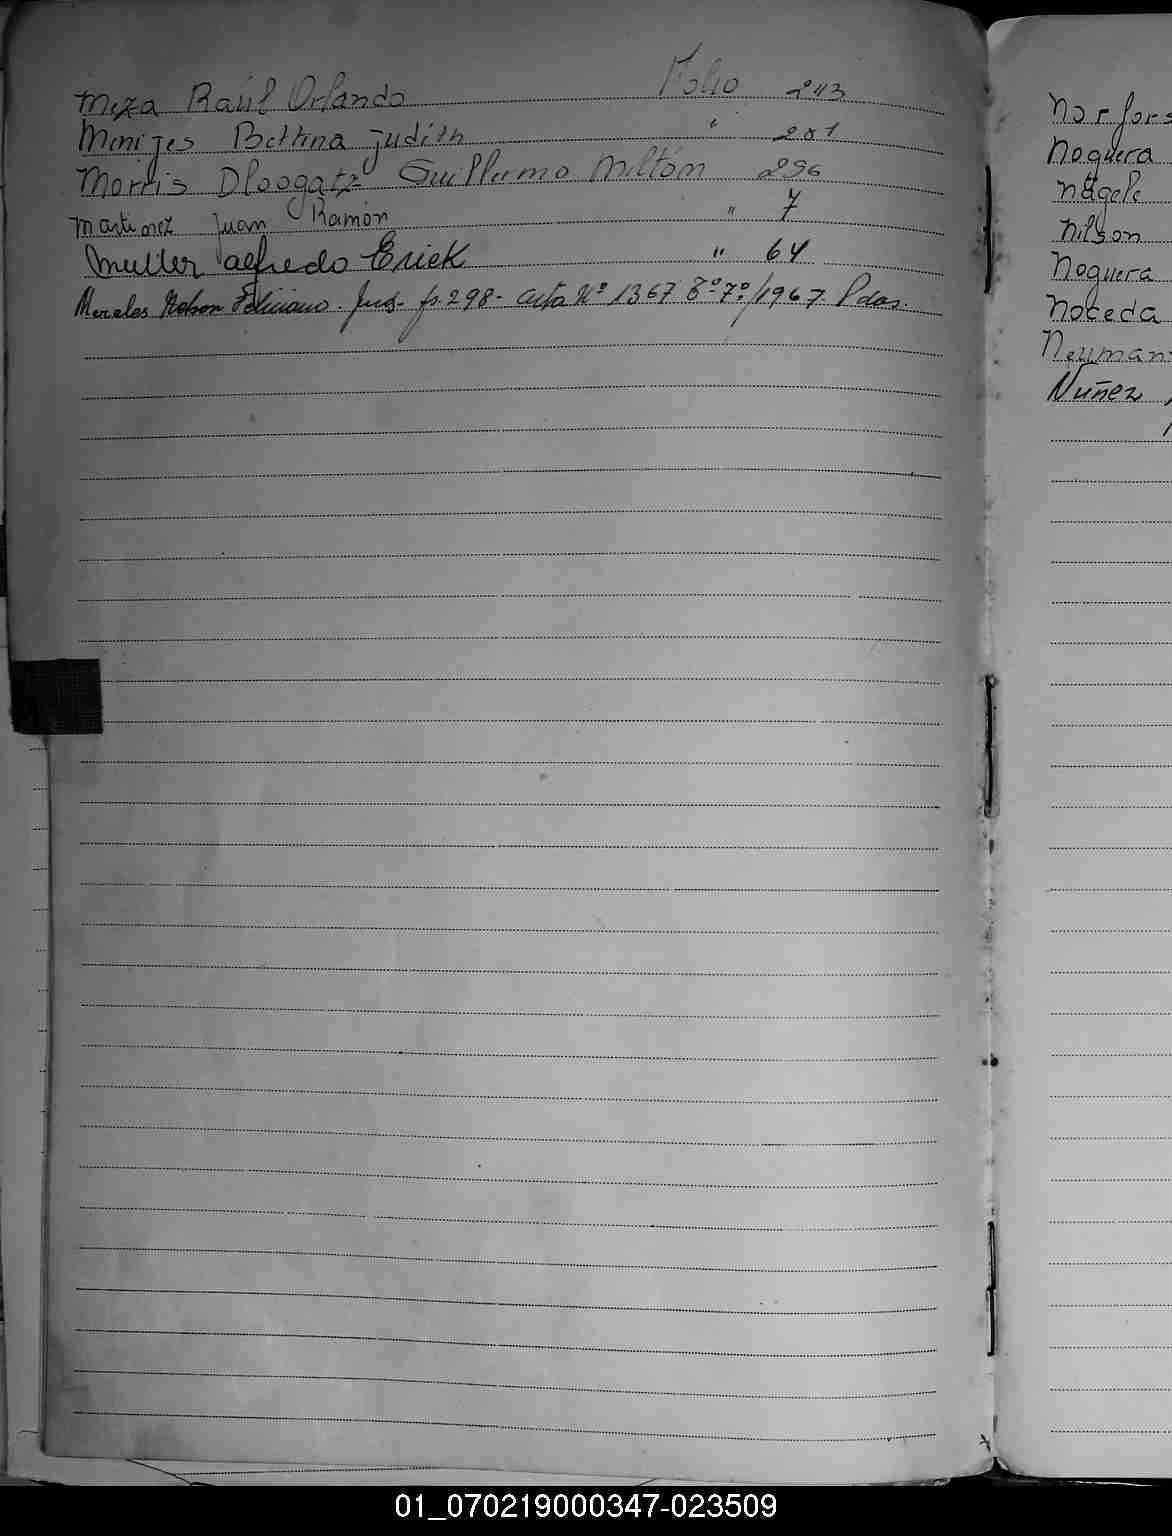 Meza Raúl Orlando Folio 243
Menijes Bettina Judith " 281
Morris Dloogatz Guillermo Miltón 296
Martinez Juan Ramón " 7
Muller Alfredo Erick " 64
Mereles Nelson Feliciano. fs. 298. acta Nº 1367 Tº 7º/1967. Pdas.
Norfors
Noguera
Nägele
Nilson
Noguera
Noceda
Neumann
Nuñez
01_070219000347-023509